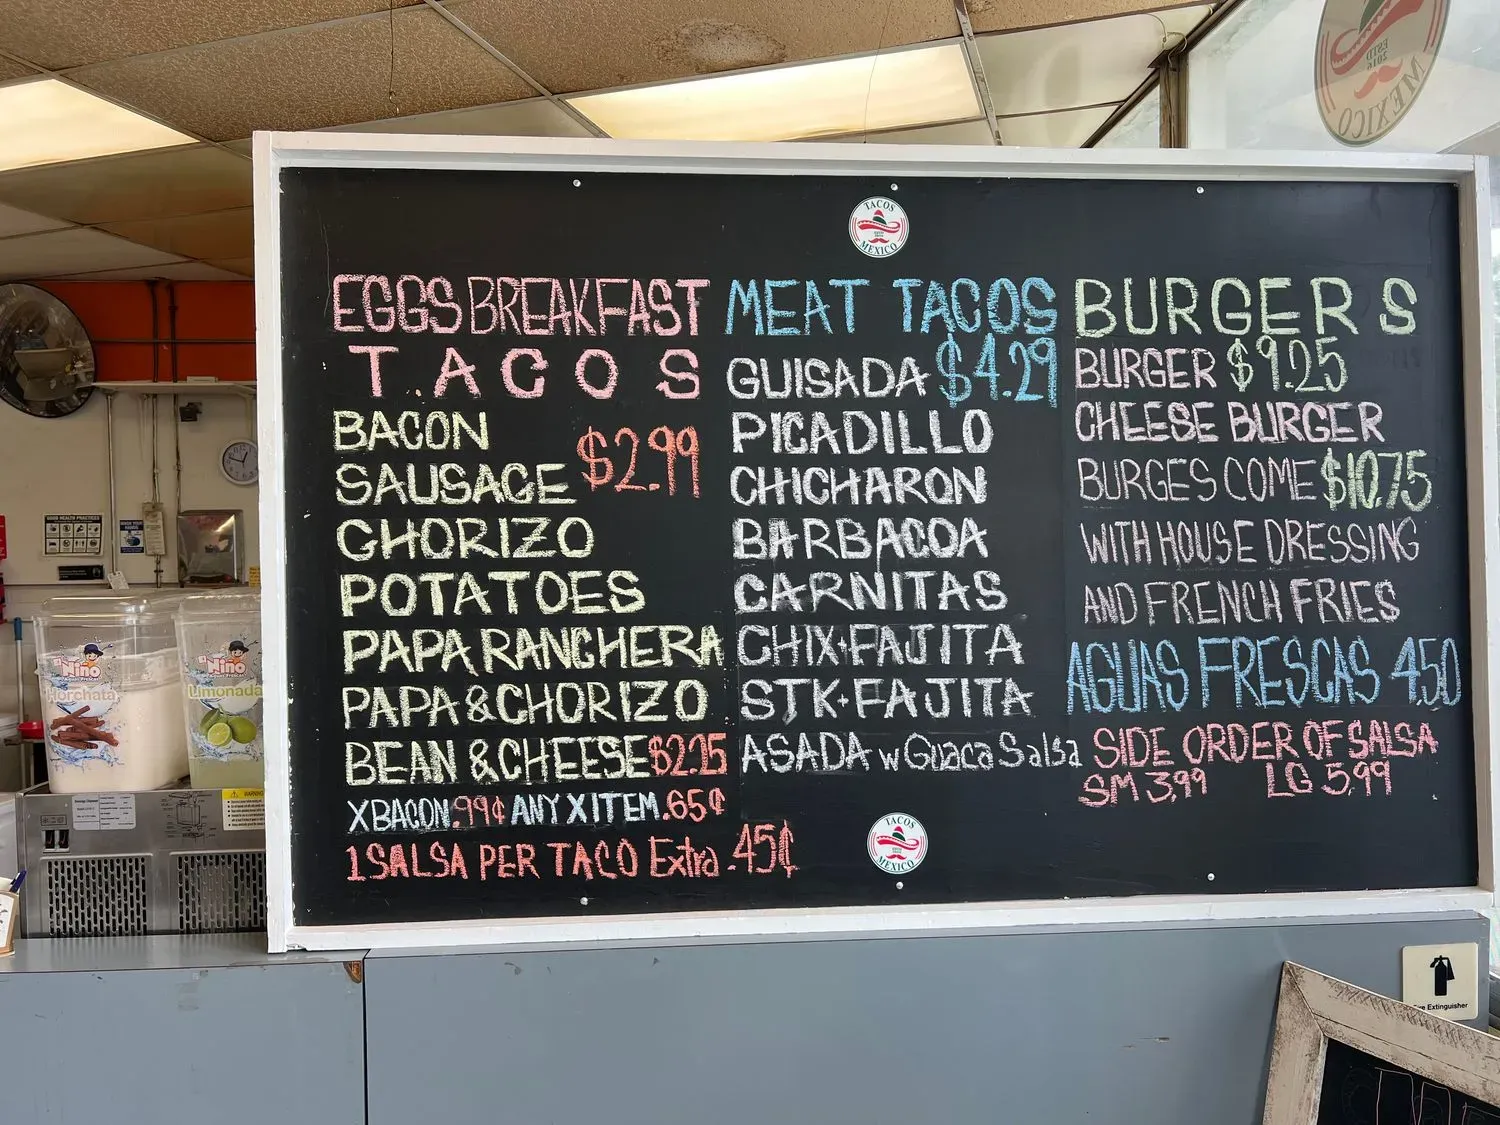 TACOS
MEXICO
EGGS BREAKFAST
TACOS
BACON
$2.99
SAUSAGE
CHORIZO
POTATOES
PAPA RANCHERA
PAPA & CHORIZO
BEAN & CHEESE $2.25
XBACON .99¢ ANY XITEM .65¢
1 SALSA PER TACO Extra .45¢
MEAT TACOS
GUISADA $4.29
PICADILLO
CHICHARON
BARBACOA
CARNITAS
CHIX-FAJITA
STK-FAJITA
ASADA w Guaca Salsa
BURGERS
BURGER $9.25
CHEESE BURGER
BURGES COME $10.75
WITH HOUSE DRESSING
AND FRENCH FRIES
AGUAS FRESCAS 4.50
SIDE ORDER OF SALSA
SM 3.99 LG 5.99
TACOS
MEXICO
ESTD
2016
MEXICO
Niño
Aguas Frescas
Horchata
Niño
Limonada
GOOD HEALTH PRACTICES
WASH YOUR
HANDS
WARNING
Fire Extinguisher